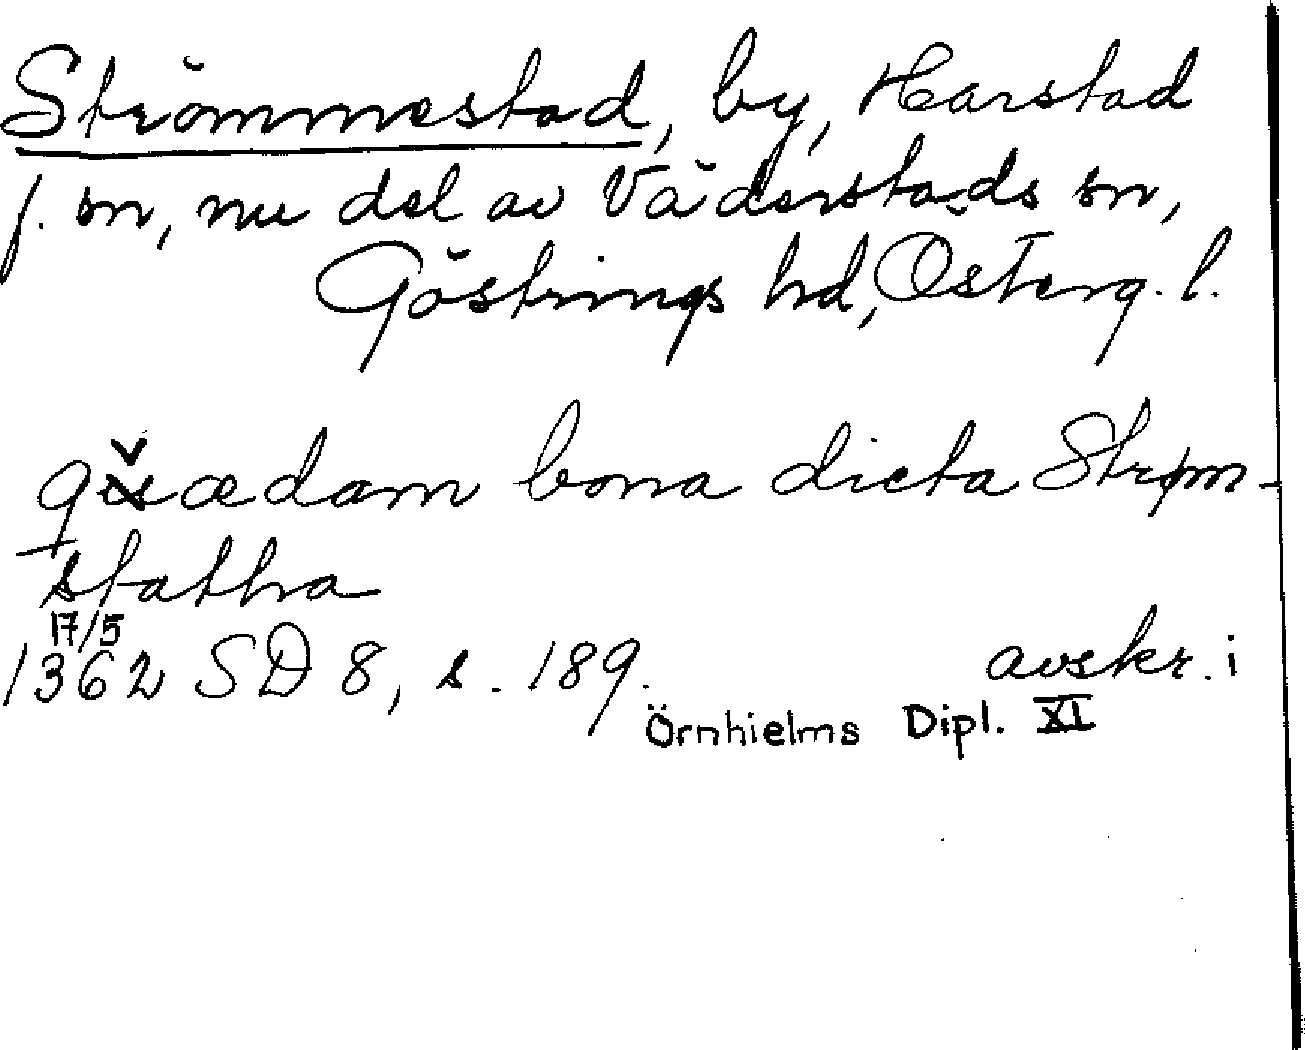 Strömmestad, by, Harstad
f. sn, nu del av Väderstads sn,
Göstrings hd, Österg. l.
quædam bona dicta Strøm-
stathra
17/5
1362 SD 8, s. 189. avskr. i
Örnhielms Dipl. XI